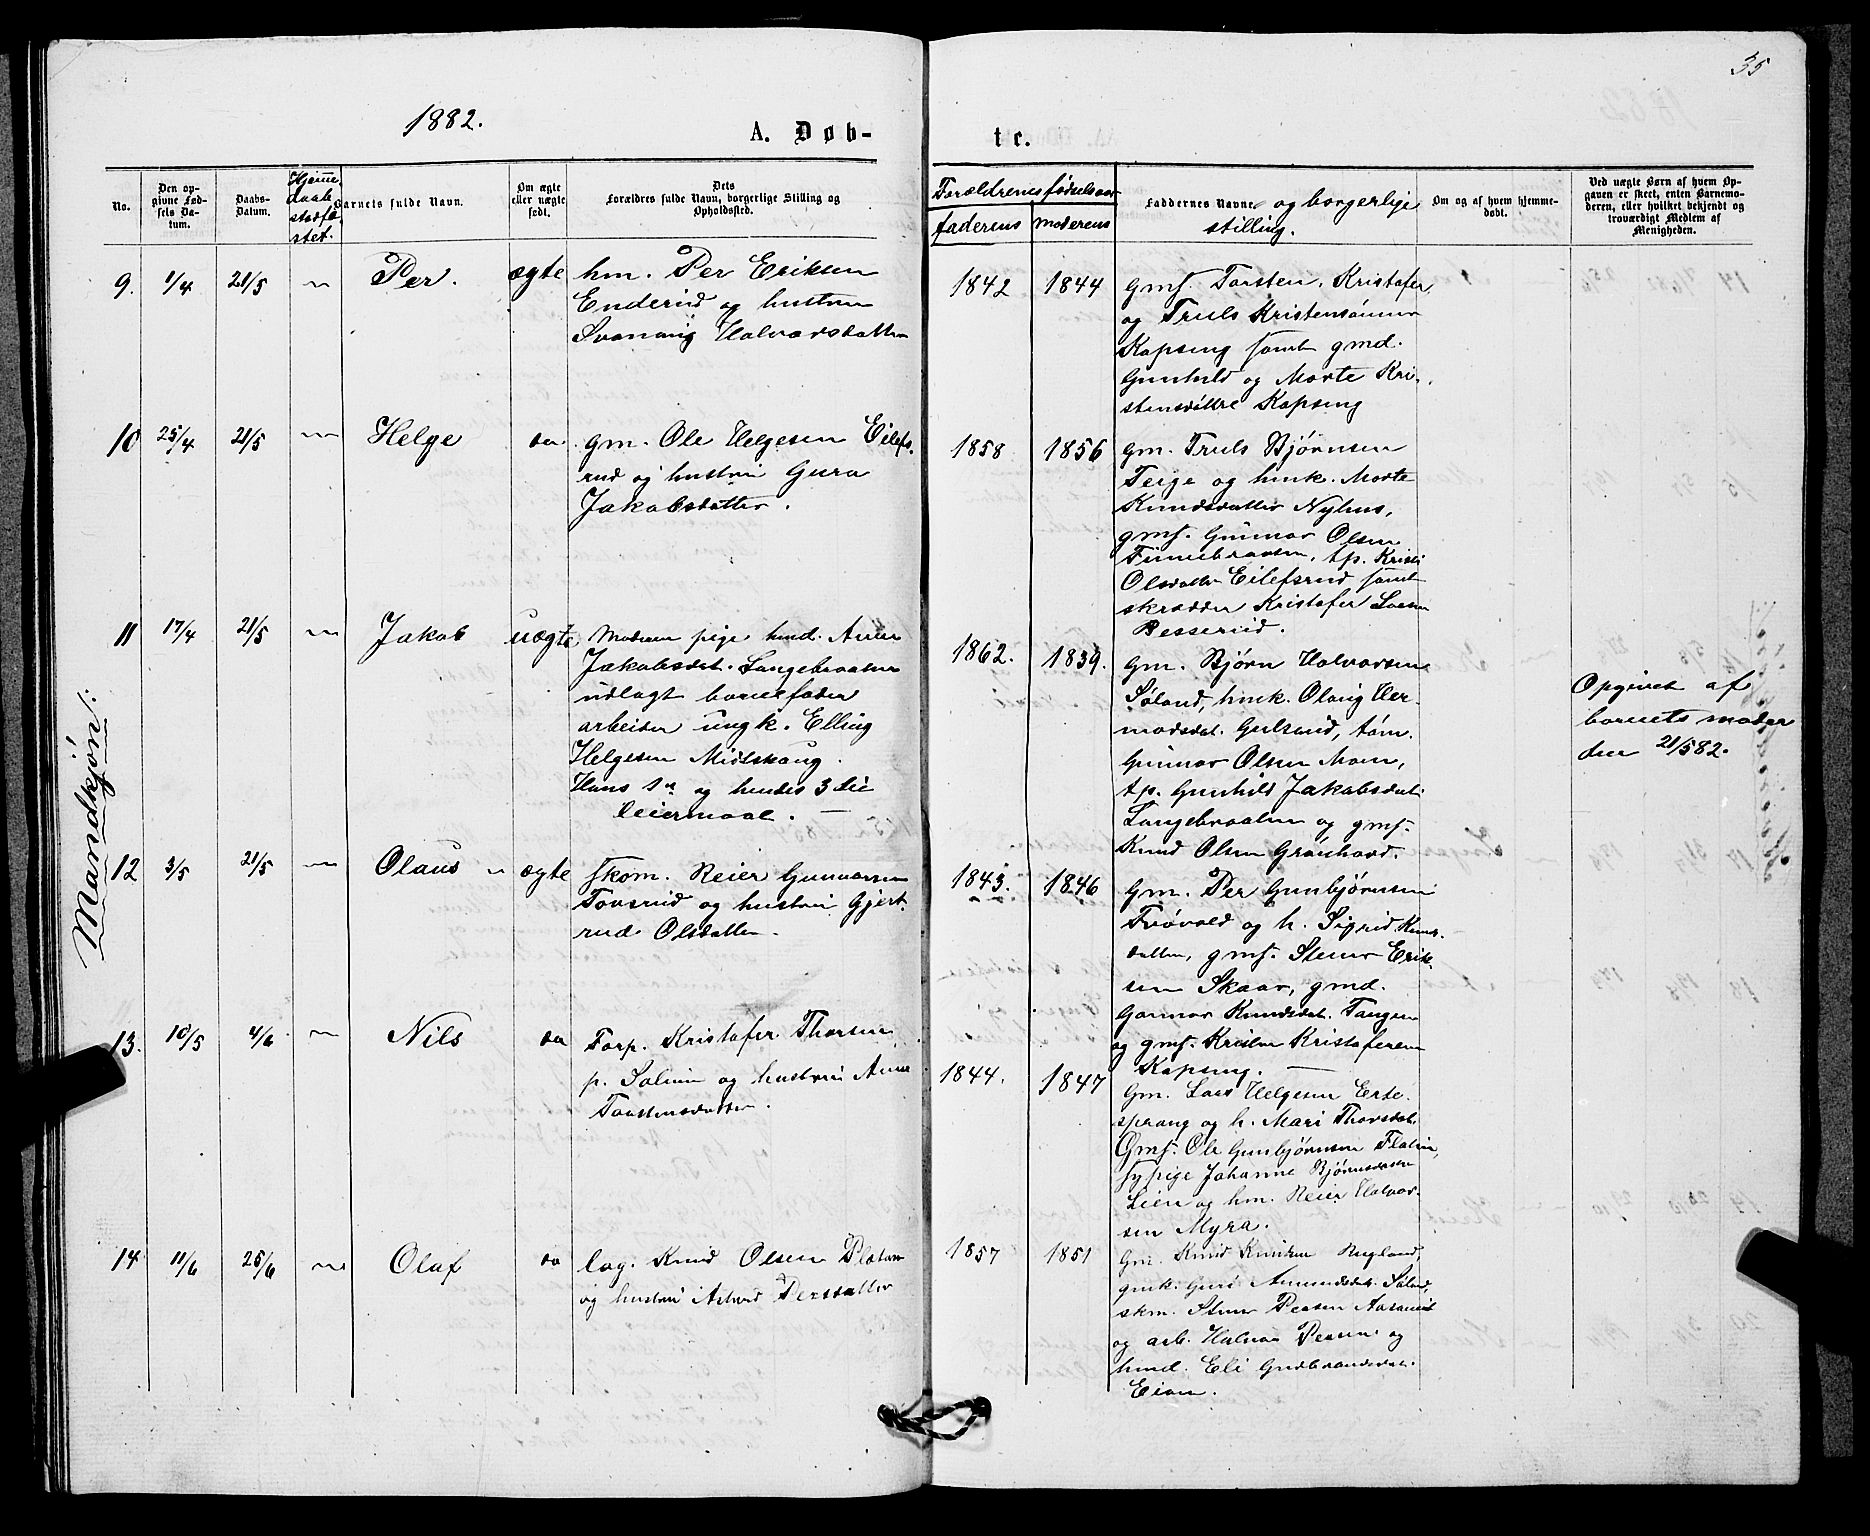 35
1882.
A. Døb-
te.
No.
Den op-
givne Fød-
sels Da-
tum.
Daabs-
Datum.
Hjemme-
daab
stadfæ
stet.
Barnets fulde Navn.
Om ægte
eller uægte
født.
Dets
Forældres fulde Navn, borgerlige Stilling og
Opholdssted.
Forældrenes fødselsaar
faderens
moderens
Faddernes Navne og borgerlige
stilling.
Om og af hvem hjemme-
døbt.
Ved uægte Børn af hvem Op-
gaven er skeet, enten Barnemo-
deren, eller hvilket bekjendt og
troværdigt Medlem af
Menigheden.
Mandkjøn:
9. 1/4 21/5 Per. ægte
hm. Per Eriksen
Enderud og hustru
Svanaug Halvorsdatter
1842 1844
gmf. Torsten, Kristofer
og Truls Kristensønner
Kapseng samt gmd.
Gunhild og Marte Kri-
stensdøttre Kapseng
10 25/4 21/5 Helge do
gm. Ole Helgesen Eilefs-
rud og hustru Guro
Jakobsdatter.
1858 1856
gm. Truls Bjørnsen
Teige og hmk. Marte
Knudsdatter Nyhus,
gmf. Gunnar Olsen
Finnebraaten, tp. Kristi
Olsdatter Eilefsrud samt
skrædder Kristofer Larsen
Besserud.
11 17/4 21/5 Jakob uægte
Moderen pige hmd. Anne
Jakobsdat. Langebraaten
udlagt barnefader
arbeider ungk. Elling
Helgesen Midtskaug.
Hans 1ste og hendes 3die
leiermaal.
1862. 1839.
gm. Bjørn Halvorsen
Søland, hmk. Olaug Her-
modsdat. Gulsrud, tøm.
Gunnar Olsen Moen,
tp. Gunhild Jakobsdat.
Langebraaten og gmf.
Knud Olsen Grønhovd.
Opgivet af
barnets moder
den 21/5 82.
12 3/5 21/5 Olaus ægte
skom. Reier Gunnarsen
Tovsrud og hustru Gjert-
rud Olsdatter.
1843. 1846
Gm. Per Gunbjørnsen
Frøvold og h. Sigrid Knuds-
datter, gmf. Stener Erik-
sen Skaar, gmd.
Gunnor Knudsdat. Tangen
og gmf. Kristen Kristofersen
Kapseng.
13. 10/5 4/6 Nils do
Torp. Kristofer Thorsen
p. Solum og hustru Anne
Torstensdatter.
1844. 1847
Gm. Lars Helgesen Erte-
sprang og h. Mari Thorsdat.
Gmf. Ole Gunbjørnsen Flaten,
sypige Johanne Bjørnsdatter
Lien og hm. Reier Halvor-
sen Myra.
14 11/6 25/6 Olaf do
lag. Knud Olsen Platen
og hustru Astrid Persdatter
1857 1851
Gm. Knud Knudsen Rugland,
gmk. Guri Amundsdat. Søland,
skm. Stener Persen Aasarud
og arb. Halvor Persen og
hmd. Eli Gudbrandsdat.
Eian.